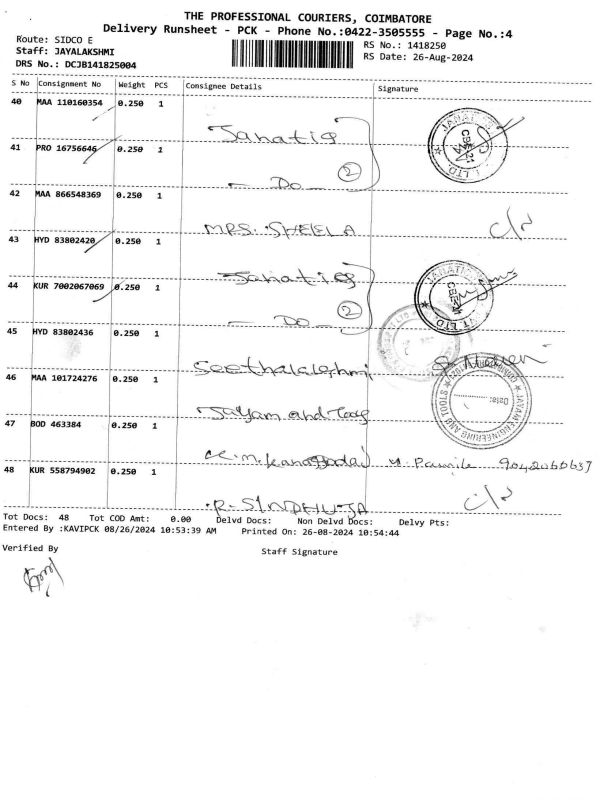 THE PROFESSIONAL COURIERS, COIMBATORE
Delivery Runsheet - PCK - Phone No.:0422-3505555 - Page No.:4
Route: SIDCO E
RS No.: 1418250
Staff: JAYALAKSHMI
RS Date: 26-Aug-2024
DRS No.: DCJB141825004
S No Consignment No Weight PCS Consignee Details Signature
40 MAA 110160354 0.250 1
Janatics
41 PRO 16756646 0.250 1
- Do - 2
42 MAA 866548369 0.250 1
MRS. SHEELA
43 HYD 83802420 0.250 1
Janatics
44 KUR 7002067069 0.250 1
- Do - 2
45 HYD 83802436 0.250 1
Seethalakshmi
46 MAA 101724276 0.250 1
Jayam and Tools
JAYAM ENGINEERING AND TOOLS
Date:
47 BOD 463384 0.250 1
48 KUR 558794902 0.250 1
R. SINDHUJA
Tot Docs: 48 Tot COD Amt: 0.00 Delvd Docs: Non Delvd Docs: Delvy Pts:
Entered By :KAVIPCK 08/26/2024 10:53:39 AM Printed On: 26-08-2024 10:54:44
Verified By
Staff Signature